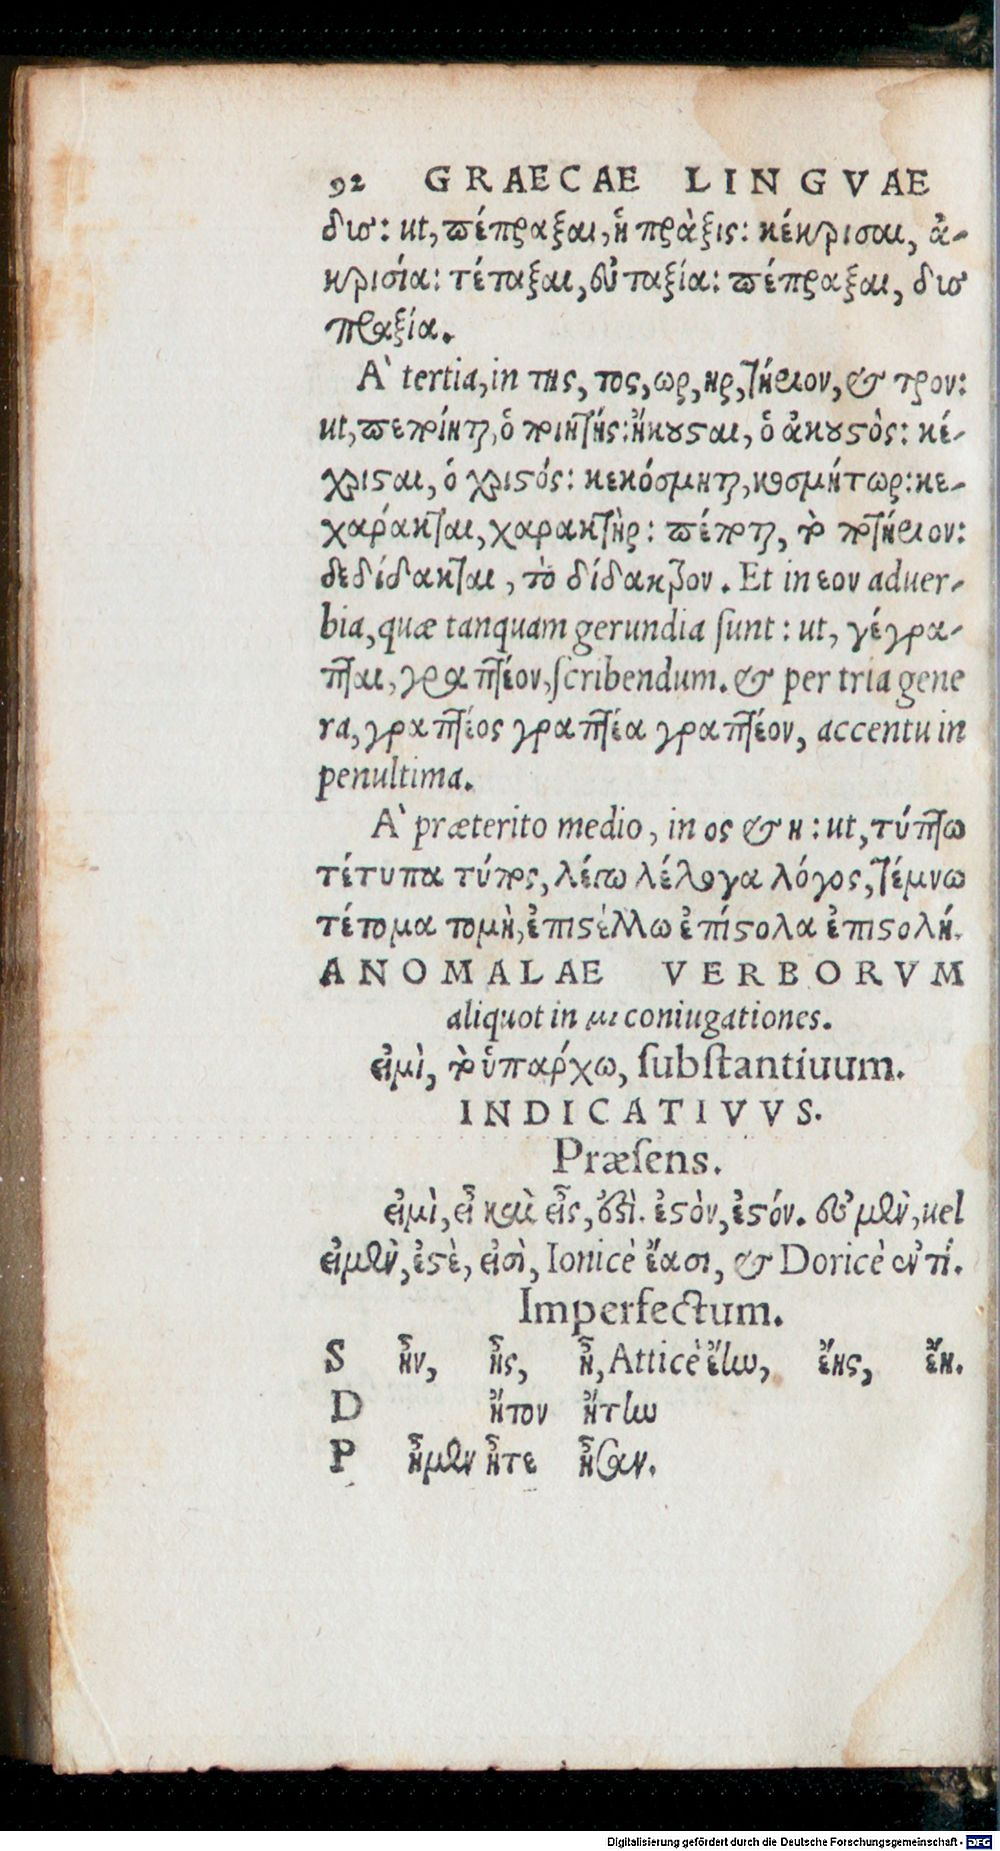 92 GRAECAE LINGVAE
δυσ: ut, πέπραξαι, ἡ πρὰξις: κέκρισαι, ἀ-
κρισία: τέταξαι, εὐταξία: πέπραξαι, δυσ
πραξία.
A' tertia, in της, τος, ωρ, ηρ, τήριον, & τρον:
ut, πεποίηται, ὁ ποιητής: ἤκουσται, ὁ ἀκουστὸς: κέ-
χρισται, ὁ χριστός: κεκόσμηται, κοσμήτωρ: κε-
χαράκται, χαρακτὴρ: πέποται, τὸ ποτήριον:
δεδίδακται, τὸ δίδακτρον. Et in εον aduer-
bia, quæ tanquam gerundia ſunt: ut, γέγρα-
πται, γραπτέον, ſcribendum. & per tria gene
ra, γραπτέος γραπτέα γραπτέον, accentu in
penultima.
A' præterito medio, in ος & η: ut, τύπτω
τέτυπα τύπος, λέγω λέλογα λόγος, τέμνω
τέτομα τομὴ, ἐπιστέλλω ἐπίστολα ἐπιστολή.
ANOMALAE VERBORVM
aliquot in μι coniugationes.
εἰμὶ, τὸ ὑπάρχω, ſubſtantiuum.
INDICATIVVS.
Præſens.
εἰμὶ, εἶ καὶ εἶς, ἐστὶ. ἐστὸν, ἐστόν. ἐσμὲν, uel
εἰμὲν, ἐστὲ, εἰσὶ, Ionicè ἔασι, & Doricè ἐντί.
Imperfectum.
S ἦν, ἦς, ἦ, Atticè ἔην, ἔης, ἔη.
D ἤτον ἤτην
P ἦμεν ἦτε ἦσαν.
Digitalisierung gefördert durch die Deutsche Forschungsgemeinschaft - DFG